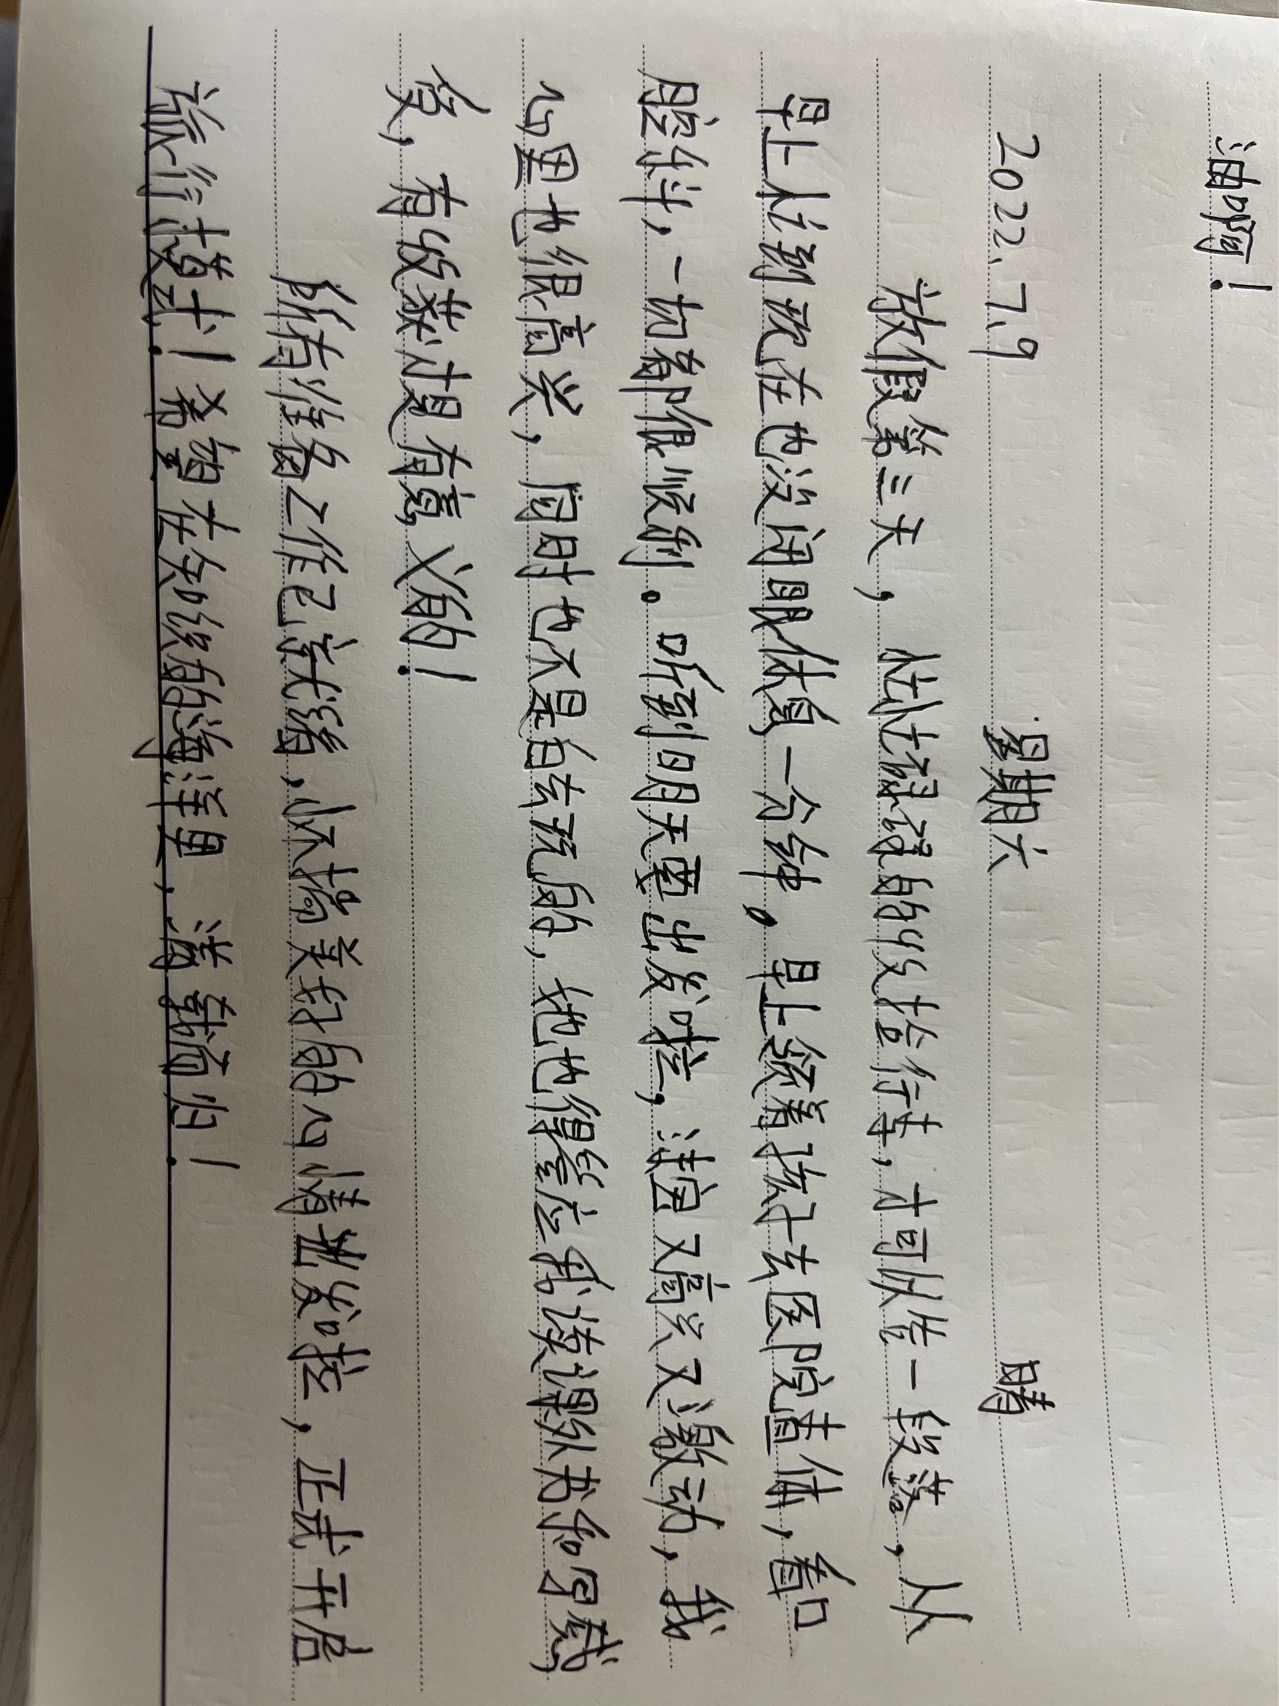 油啊!
2022.7.9 星期六 晴
放假第三天,忙忙碌碌的收拾行李,才可以告一段落,从
早上忙到现在也没闭眼休息一分钟。早上领着孩子去医院查体,看口
腔科,一切都很顺利。听到明天要出发啦,洋国又高兴又激动,我
心里也很高兴,同时也不是白去玩的,她也得答应我读课外书和写感
受,有收获才是有意义的!
所有准备工作已就绪,怀揣美好的心情出发啦,正式开启
旅行模式!希望在知识的海洋里,满载而归!